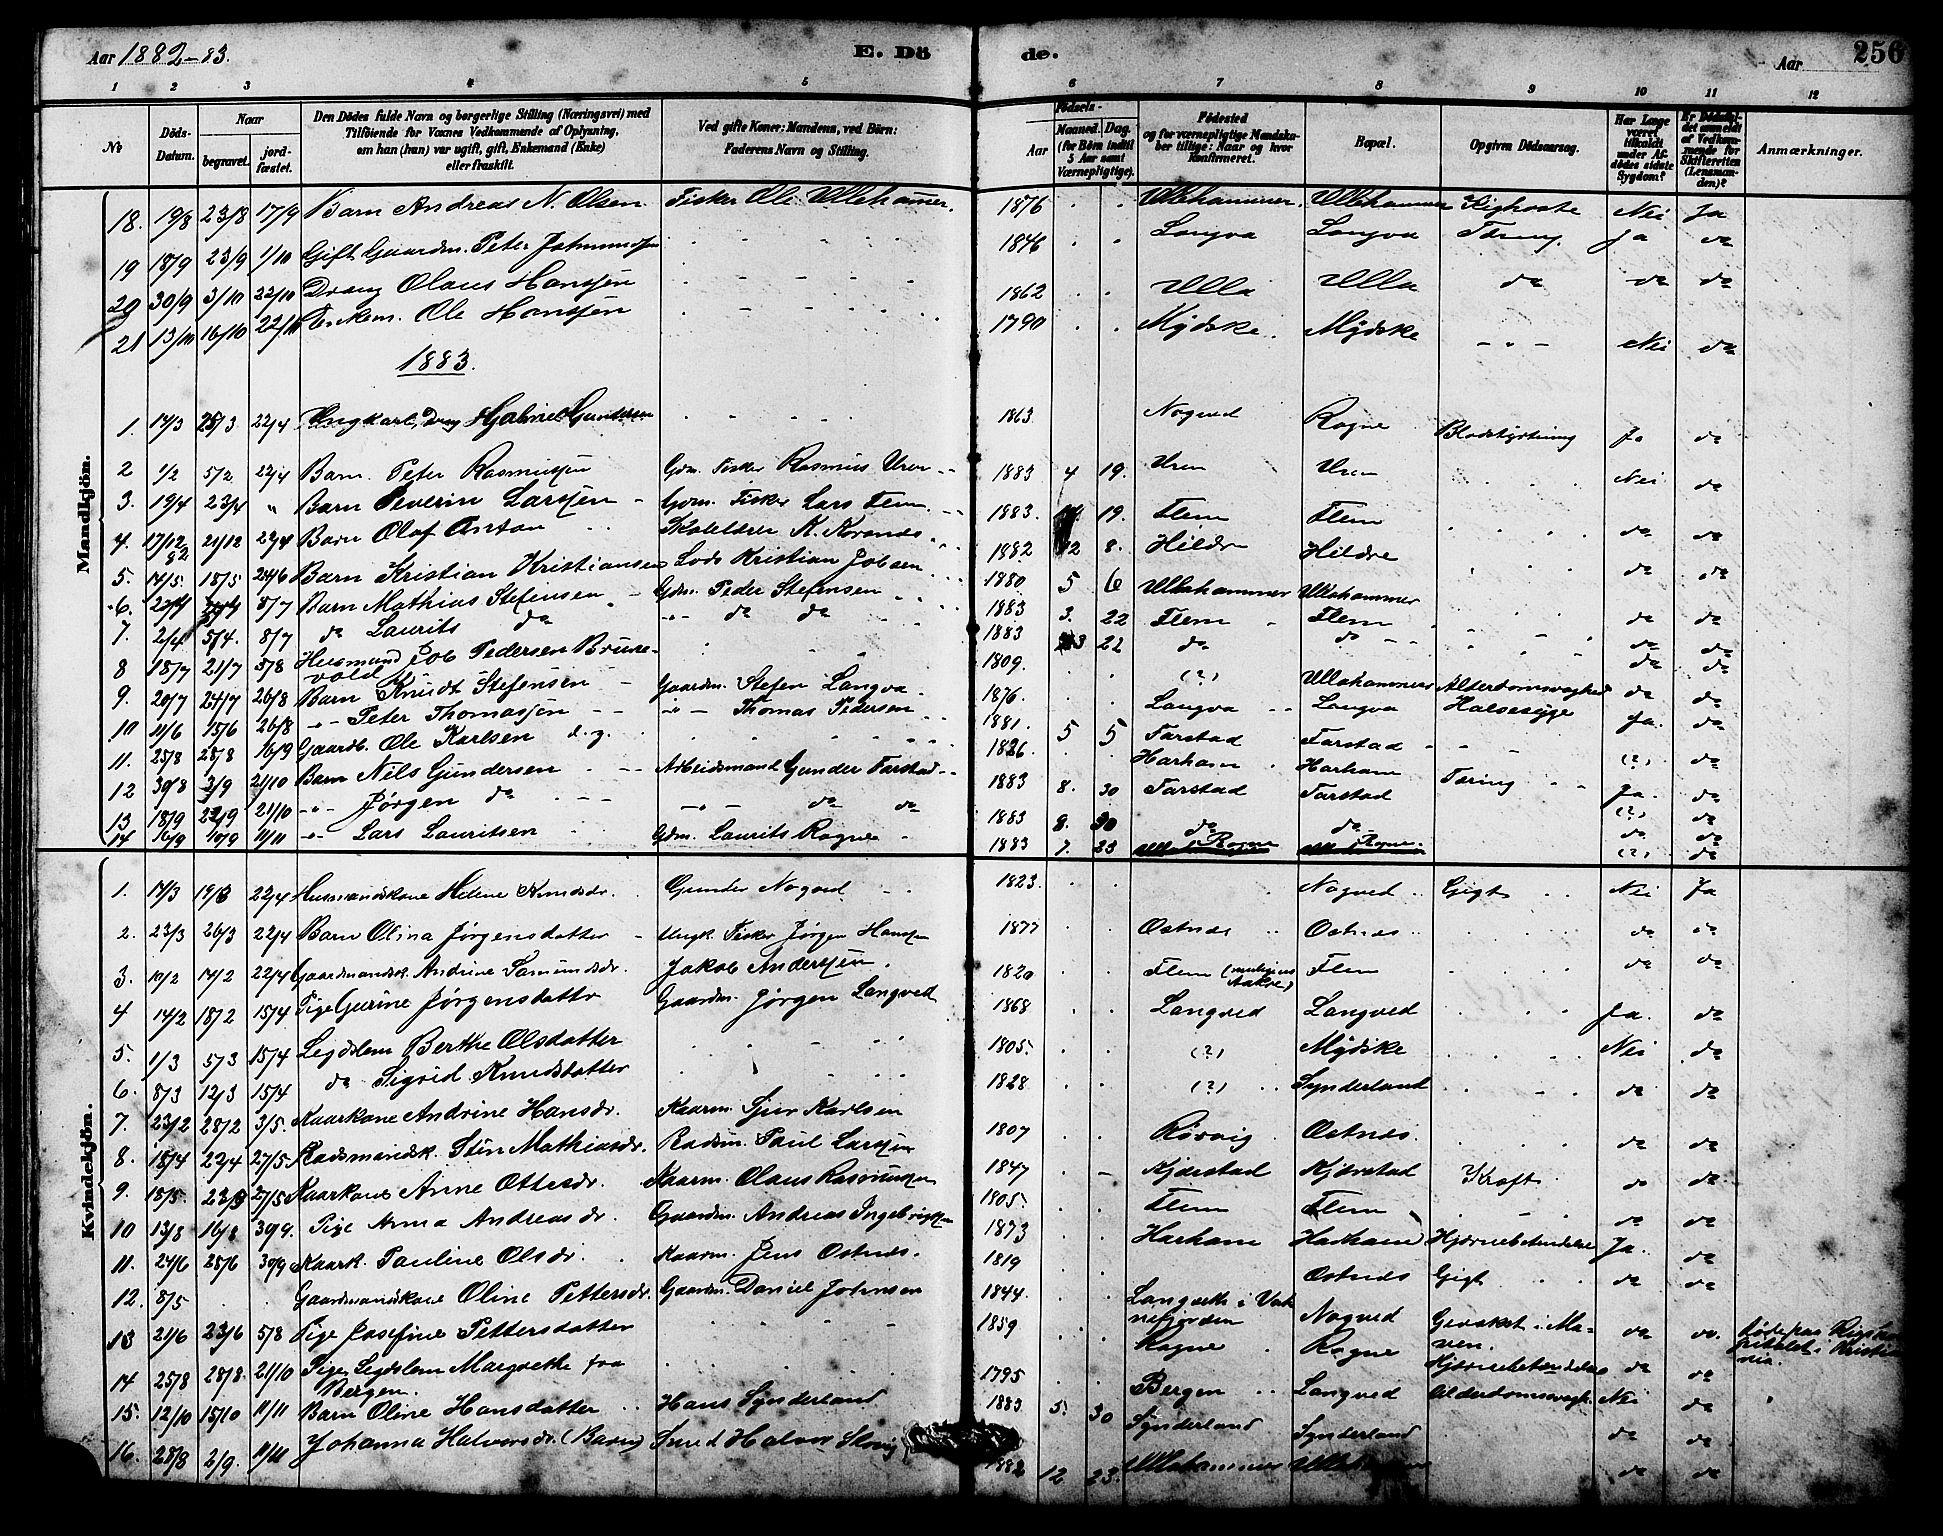 Aar 1882-83. E. Dö de. Aar 256
1 2 3 4 5 6 7 8 9 10 11 12
№ Döds-Datum. Naar begravet. jord-fæstet. Den Dödes fulde Navn og borgerlige Stilling (Næringsvei) med Tilföiende for Voxnes Vedkommende af Oplysning, om han (hun) var ugift, gift, Enkemand (Enke) eller fraskilt. Ved gifte Koner: Mandens, ved Börn: Faderens Navn og Stilling. Födsels- Aar Maaned. Dag. (for Börn indtil 5 Aar samt Værnepligtige). Födested og for værnepligtige Mandskaber tillige: Naar og hvor Konfirmeret. Bopæl. Opgiven Dödsaarsag. Har Læge været tilkaldt under Afdödes sidste Sygdom? Er Dödsfaldet anmeldt af Vedkommende for Skifteretten (Lensmanden)? Anmærkninger.
Mandkjön.
18. 19/8 23/8 17/9 Barn Andreas N. Olsen Fisker Ole Ullehammer. 1876 Ullahammer. Ullahammer Kighoste Nei Ja
19 18/9 23/9 1/10 Gift Gaardm. Peter 1846 Longva Longva Tæring Ja do
20 30/9 3/10 22/10 Dreng Olaus Hanssen 1862 Ulla Ulla do do do
21 13/10 16/10 22/10 Enkem. Ole Hanssen 1790 Mÿdske. Mÿdske - " - Nei do
1883.
1. 17/3 25/3 22/4 Ungkarl, Gundersen 1863 Nogved Rogne Blodstyrtning Ja do
2 1/2 5/2 22/4 Barn Peter Rasmussen Gdm. Fisker Rasmus Uren 1883 4 19. Uren Uren Nei do
3. 19/4 23/4 " Barn Peverin Larssen Gdm. Fisker Lars Flem 1883. 19. Flem Flem do do
4. 17/12 82 21/12 22/4 Barn Olaf Anton Skolelærer K. 1882 12 8. Hildre Hildre do do
5. 14/5 18/5 24/6 Barn Kristian Kristiansen Lods Kristian Jobsen 1880 5 6 Ullahammer Ullahammer
6. 8/7 Barn Mathias Stefensen Gdm. Peder Stefensen 1883 3. 22 Flem Flem do do
7. 2/4 5/4. 8/7 do Laurits do do do 1883 3 22 do do do do
8 18/7 21/7 5/8 Husmand Job Pedersen Brunevold 1809. (?) Ullahammer Alderdomssvaghed do do
9. 20/7 24/7 26/8 Barn Knudt Stefensen Gaardm. Stefen Longva 1876. Longva Longva Halsesyge Ja. do
10 11/6 15/6 26/8 " Peter Thomassen " Thomas Pedersen 1881. 5 5 Farstad Farstad (?) do
11. 25/8 28/8 16/9 Gaardb. Ole Karlsen 1826. Harham Harham Tæring Ja. do
12 30/8 2/9 21/10 Barn Nils Gundersen Arbeidsmand Gunder Farstad 1883 8. 30 Farstad Farstad (?) do
13 18/9 22/9 21/10 " Jørgen do " do do 1883 8. 30 do do do do
14 16/9 11/11 " Lars Lauritsen Gdm. Laurits Rogne 1883 7. 23 Rogne Rogne. (?) do
Kvindekjön.
1. 17/3 19/3 22/4 Husmandskone Helene Knudsdr. Gunder Nogved 1823. Nogved Gigt Nei Ja
2. 23/3 26/3 22/4 Barn Olina Jørgensdatter Ungk. Fisker Jørgen Hanssen 1877 Østnes Østnes do do
3. 10/2 14/2 22/4 Gaardmandsk. Andrine Samundsdr. Jakob Anderssen. 1820 Flem (muligens Aakre) Flem do do
4 14/2 18/2 15/4 Pige Gurine Jørgensdattr Gaardm. Jørgen Longved 1868 Longved Longved Ja. do
5. 1/3 5/3 15/4 Legdslem Berthe Olsdatter 1805. (?) Mÿdske Nei do
6. 8/3 12/3 15/4 do Sigrid Knudsdatter 1828 (?) Synderland do do
7. 23/2 28/2 3/5. Kaarkone Andrine Hansdr. Kaarm. Sjur Karlsen 1807 Rørvig Østnes. do do
8. 18/4 22/4 27/5 Mathiasdr. Paul Larssen 1847 Kjerstad Kjerstad Kræft do do
9. 18/5. 27/5 Kaarkone Anne Ottesdr. Kaarm. Olaus Rasmussen 1805. Flem Flem do do
10 13/8 16/8 30/9. Pige Anna Andreasdr. Gaardm. Andreas Ingebrigtsen 1873 Harham Harham Hjernebetændelse Ja. do
11. 24/6 28/6 30/9 Kaark. Pauline Olsdr. Kaarm. Jens Østnes. 1819 Østnes Gigt do do
12. 8/5 Gaardmandskone Oline Pettersdr. Gaardm. Daniel Johnsen 1844. i Vatnefjorden Nogved i Maven. do do. i Kristiania.
13 21/6 23/6 5/8 Pige Josefine Pettersdatter 1859 Rogne Rogne Hjernebetændelse do do
14 25/8 28/8. 21/10 Pige Legdslem Margrethe fra Bergen. 1795 Bergen Longved Alderdomssvagh. Nei do
15. 12/10 15/10 11/11 Barn Oline Hansdatter Hans Synderland 1883 5. 30 Synderland Synderland do do
16. 28/8 2/9. 11/11 Johanna Halvorsdr. (Barn) Smed Halvor 1882 12 23. Ullahammer do do